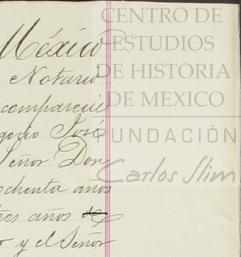 CENTRO DE
ESTUDIOS
DE HISTORIA
DE MEXICO
FUNDACIÓN
Carlos Slim
México
Notario
comparecie
José
Señor Don
ochenta años
años de
y el Señor